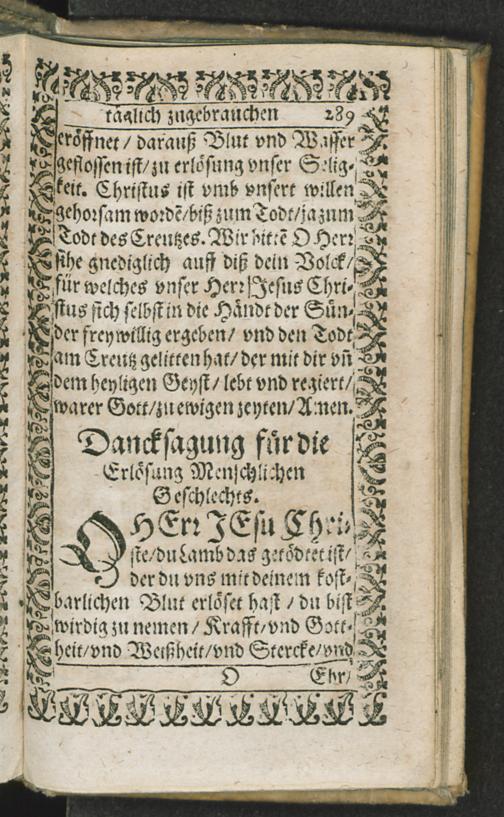 täglich zugebrauchen 289
eröffnet / darauß Blut vnd Wasser
geflossen ist/ zu erlösung vnser Selig-
keit. Christus ist vmb vnsert willen
gehorsam wordē/biß zum Todt/ja zum
Todt des Creutzes. Wir bittē O Herr
sihe gnediglich auff diß dein Volck/
für welches vnser Herr Jesus Chri-
stus sich selbst in die Händt der Sün-
der freywillig ergeben/ vnd den Todt
am Creutz gelitten hat/ der mit dir vñ
dem heyligen Geyst/ lebt vnd regiert/
warer Gott/zu ewigen zeyten/ Amen.
Dancksagung für die
Erlösung Menschlichen
Geschlechts.
O HErr JEsu Chri-
ste/du Lamb das getödtet ist/
der du vns mit deinem kost-
barlichen Blut erlöset hast / du bist
wirdig zu nemen / Krafft/vnd Gott-
heit/vnd Weißheit/vnd Stercke/vnd
O Ehr/